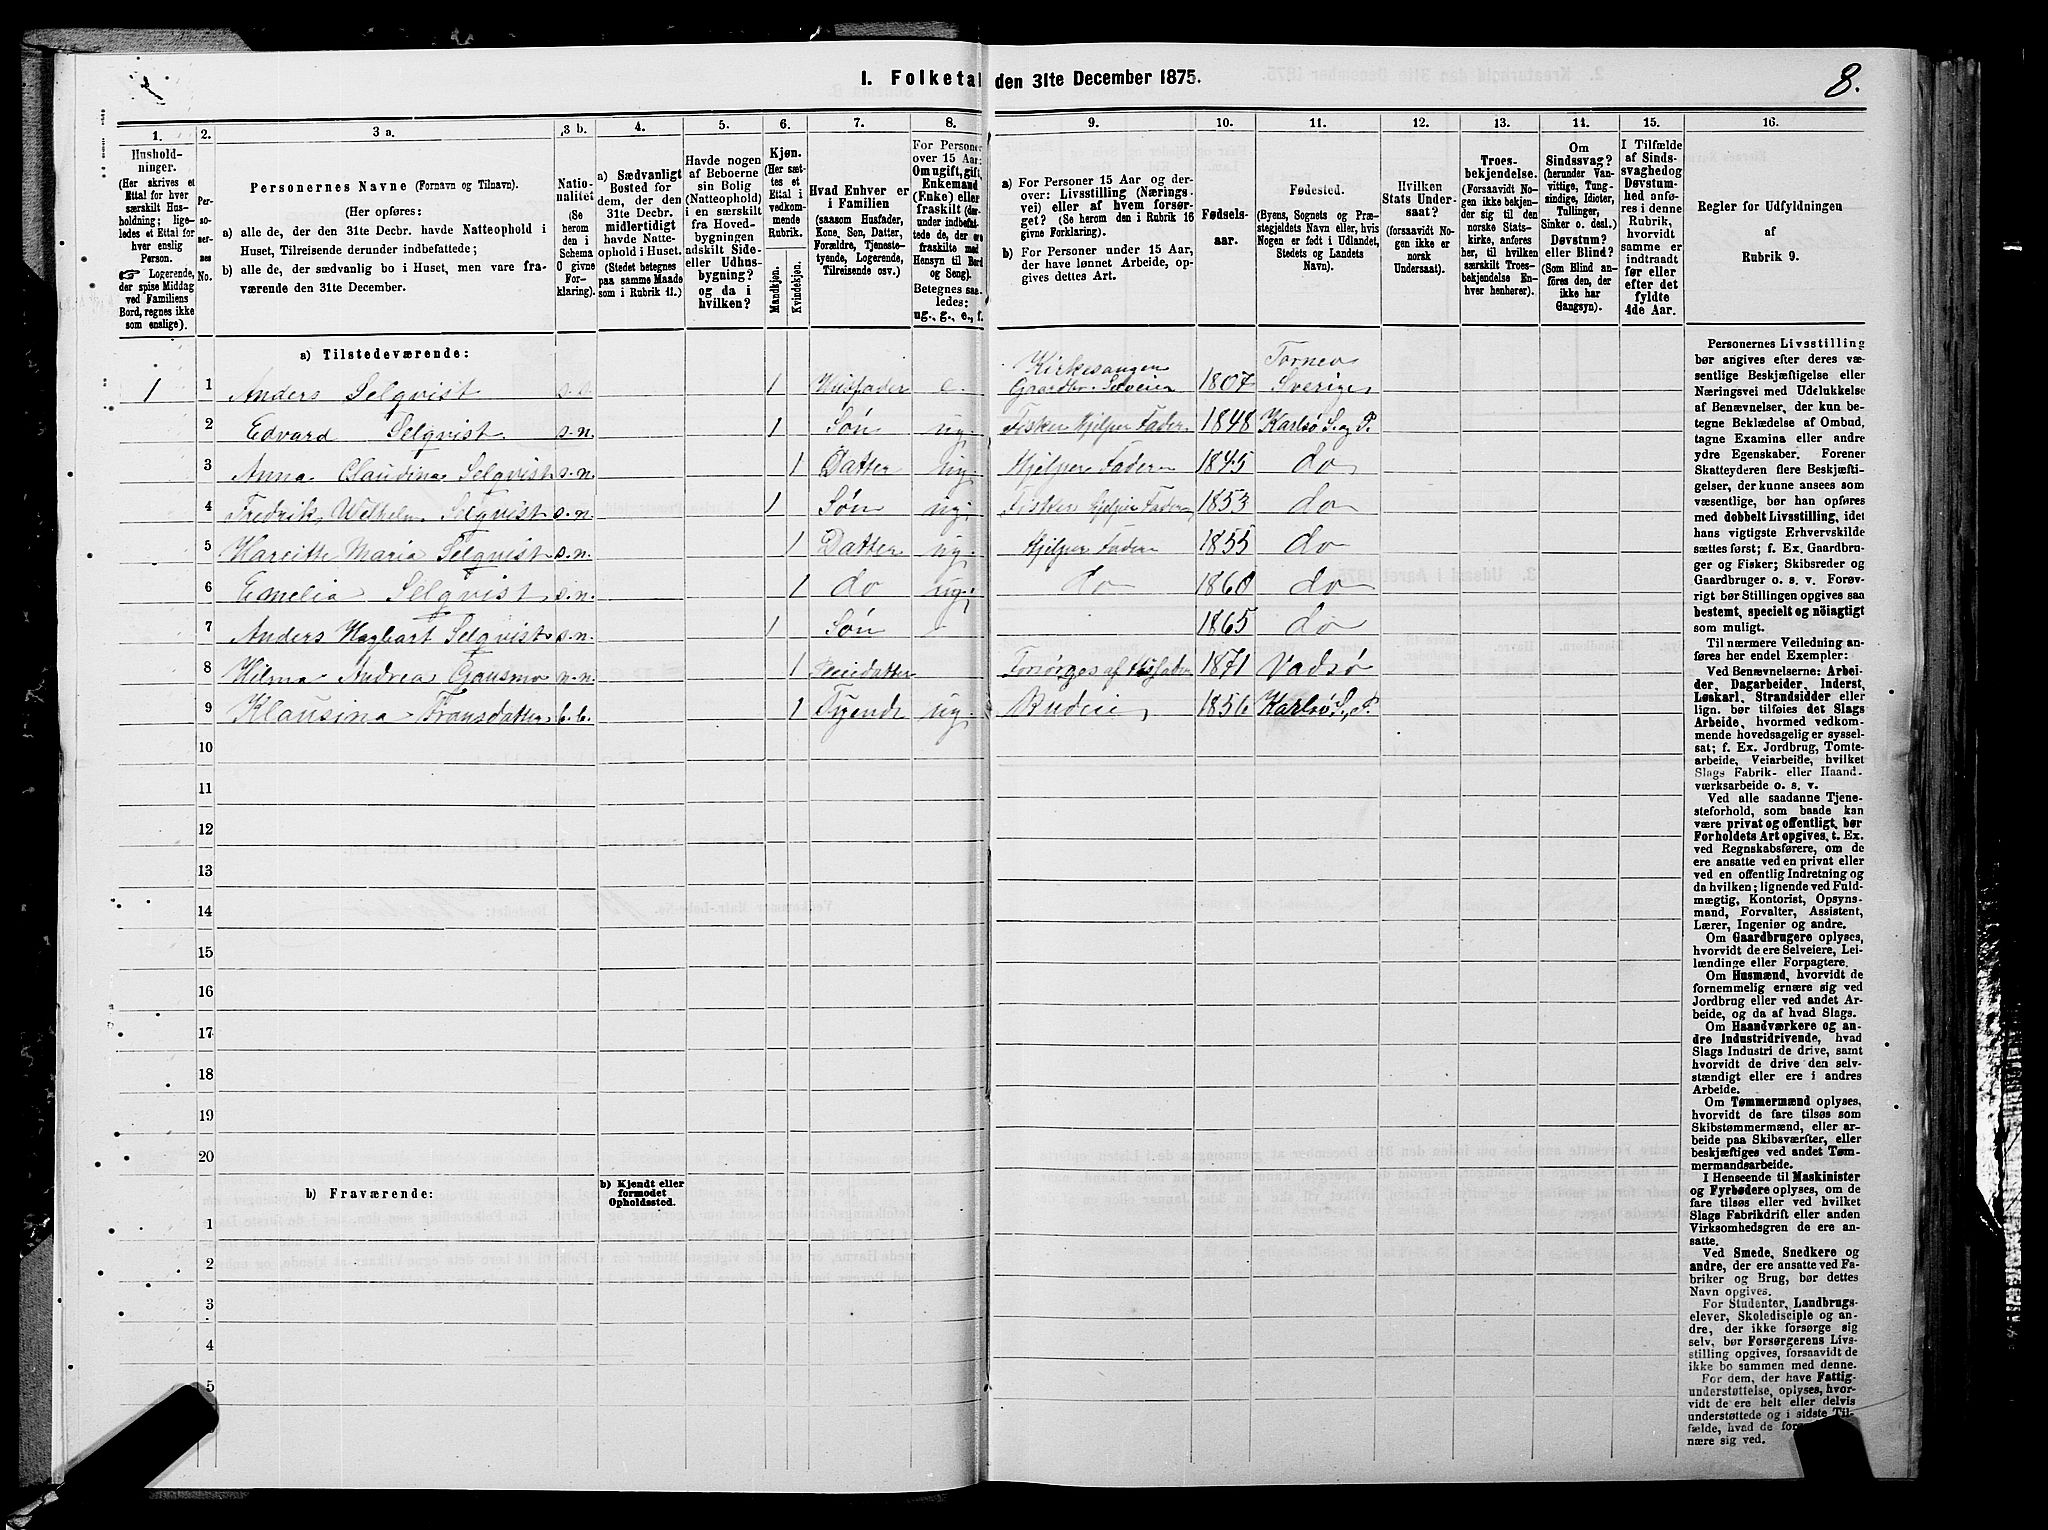 I. Folketal den 31te December 1875.
8.
1. 2. 3 a. 3 b. 4. 5. 6. 7. 8. 9. 10. 11. 12. 13. 14. 15. 16.
Hushold-
ninger.
(Her skrives et
Ettal for hver
særskilt Hus-
holdning; lige-
ledes et Ettal for
hver enslig
Person.
☞ Logerende,
der spise Middag
ved Familiens
Bord, regnes ikke
som enslige).
Per-
so-
ner-
nes
No.
Personernes Navne (Fornavn og Tilnavn).
(Her opføres:
a) alle de, der den 31te Decbr. havde Natteophold i
Huset, Tilreisende derunder indbefattede;
b) alle de, der sædvanlig bo i Huset, men vare fra-
værende den 31te December.
Natio-
nalitet
(Se
herom
den i
Schema
O givne
For-
klaring).
a) Sædvanligt
Bosted for
dem, der den
31te Decbr.
midlertidigt
havde Natte-
ophold i Huset.
(Stedet betegnes
paa samme Maade
som i Rubrik 11.)
Havde nogen
af Beboerne
sin Bolig
(Natteophold)
i en særskilt
fra Hoved-
bygningen
adskilt Side-
eller Udhus-
bygning?
og da i
hvilken?
Kjøn.
(Her sæt-
tes et
Ettal i
vedkom-
mende
Rubrik.
Mandkjøn.
Kvindekjøn.
Hvad Enhver er
i Familien
(saasom Husfader,
Kone, Søn, Datter,
Forældre, Tjeneste-
tyende, Logerende,
Tilreisende osv.)
For Personer
over 15 Aar:
Om ugift, gift,
Enkemand
(Enke) eller
fraskilt (der-
under indbefat-
tede de, der ere
fraskilte med
Hensyn til Bord
og Seng).
Betegnes saa-
ledes:
ug., g., e., f.
a) For Personer 15 Aar og der-
over: Livsstilling (Nærings-
vei) eller af hvem forsør-
get? (Se herom den i Rubrik 16
givne Forklaring).
b) For Personer under 15 Aar,
der have lønnet Arbeide, op-
gives dettes Art.
Fødsels-
aar.
Fødested.
(Byens, Sognets og Præ-
stegjeldets Navn eller, hvis
Nogen er født i Udlandet,
Stedets og Landets
Navn).
Hvilken
Stats Under-
saat?
(forsaavidt No-
gen ikke er
norsk
Undersaat).
Troes-
bekjendelse.
(Forsaavidt No-
gen ikke bekjen-
der sig til den
norske Stats-
kirke, anføres
her, til hvilken
særskilt Troes-
bekjendelse En-
hver henhører).
Om
Sindssvag?
(herunder Van-
vittige, Tung-
sindige, Idioter,
Tullinger,
Sinker o. desl.)
Døvstum?
eller Blind?
(Som Blind an-
føres den, der
ikke har
Gangsyn).
I Tilfælde
af Sinds-
svaghed og
Døvstum-
hed anfø-
res i denne
Rubrik,
hvorvidt
samme er
indtraadt
før eller
efter det
fyldte
4de Aar.
Regler for Udfyldningen
af
Rubrik 9.
a) Tilstedeværende:
1 1 Anders Selqvist s.s. 1 Husfader e. Kirkesanger Gaardbr. Selveier 1807 Tornea Sverige
2 Edvard Selqvist s.n. 1 Søn ug. Fisker Hjelper Fader 1848 Karlsø S. og P.
3 Anna Claudina Selqvist s.n. 1 Datter ug. Hjelper Fader 1845 do
4 Fredrik Welhelm Selqvist s.n. 1 Søn ug. Fisker Hjelper Fader 1853 do
5 Hareitte Maria Selqvist s.n. 1 Datter ug. Hjelper Fader 1855 do
6 Emelia Selqvist s.n. 1 do ug. do 1860 do
7 Anders Hagbart Selqvist s.n. 1 Søn 1865 do
8 Hilma Andrea n.n. 1 Pleiedatter Forsørges af Husfader 1871 Vadsø
9 Klausina Fransdatter 1 Tyende ug. Budeie 1856 Karlsø S. P.
10
11
12
13
14
15
16
17
18
19
20
b) Fraværende:
b) Kjendt eller
formodet
Opholdssted.
1
2
3
4
5
Personernes Livsstilling
bør angives efter deres væ-
sentlige Beskjæftigelse eller
Næringsvei med Udelukkelse
af Benævnelser, der kun be-
tegne Beklædelse af Ombud,
tagne Examina eller andre
ydre Egenskaber. Forener
Skatteyderen flere Beskjæfti-
gelser, der kunne ansees som
væsentlige, bør han opføres
med dobbelt Livsstilling, idet
hans vigtigste Erhvervskilde
sættes først; f. Ex. Gaardbru-
ger og Fisker; Skibsreder og
Gaardbruger o. s. v. Forøv-
rigt bør Stillingen opgives saa
bestemt, specielt og nöiagtigt
som muligt.
Til nærmere Veiledning an-
føres her endel Exempler:
Ved Benævnelserne: Arbei-
der, Dagarbeider, Inderst,
Løskarl, Strandsidder eller
lign. bør tilføies det Slags
Arbeide, hvormed vedkom-
mende hovedsagelig er syssel-
sat; f. Ex. Jordbrug, Tomte-
arbeide, Veiarbeide, hvilket
Slags Fabrik- eller Haand-
værksarbeide o. s. v.
Ved alle saadanne Tjene-
steforhold, som baade kan
være privat og offentligt, bør
Forholdets Art opgives, t. Ex.
ved Regnskabsførere, om de
ere ansatte ved en privat eller
ved en offentlig Indretning og
da hvilken; lignende ved Fuld-
mægtig, Kontorist, Opsyns-
mand, Forvalter, Assistent,
Lærer, Ingeniør og andre.
Om Gaardbrugere oplyses,
hvorvidt de ere Selveiere, Lei-
lændinge eller Forpagtere.
Om Husmænd, hvorvidt de
fornemmelig ernære sig ved
Jordbrug eller ved andet Ar-
beide, og da af hvad Slags.
Om Haandværkere og an-
dre Industridrivende, hvad
Slags Industri de drive, samt
hvorvidt de drive den selv-
stændigt eller ere i andres
Arbeide.
Om Tømmermænd oplyses,
hvorvidt de fare tilsøs som
Skibstømmermænd, eller ar-
beide paa Skibsværfter, eller
beskjæftiges ved andet Tøm-
mermandsarbeide.
I Henseende til Maskinister
og Fyrbødere oplyses, om de
fare tilsøs eller ved hvilket
Slags Fabrikdrift eller anden
Virksomhedsgren de ere an-
satte.
Ved Smede, Snedkere og
andre, der ere ansatte ved Fa-
briker og Brug, bør dettes
Navn opgives.
For Studenter, Landbrugs-
elever, Skoledisciple og an-
dre, der ikke forsørge sig
selv, bør Forsørgerens Livs-
stilling opgives, forsaavidt de
ikke bo sammen med denne.
For dem, der have Fattig-
understøttelse, oplyses, hvor-
vidt de ere helt eller delvis
understøttede og i sidste Til-
fælde, hvad de
nære sig ved.